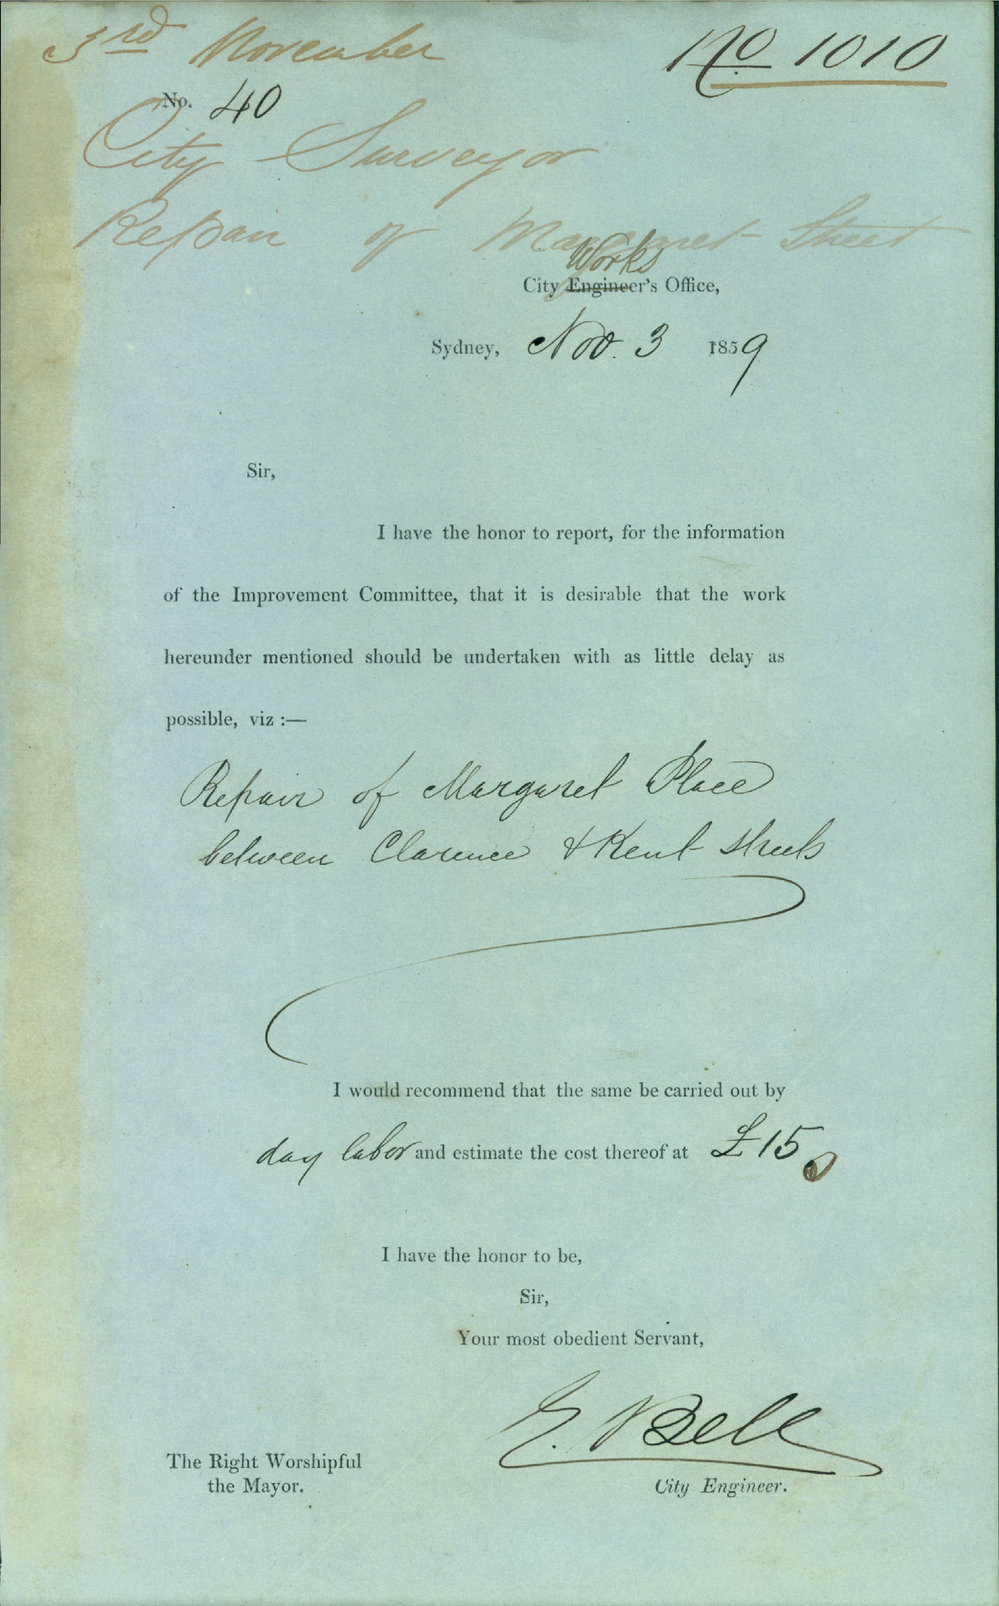 3rd November
No 1010
No. 40
City Surveyor
Repair of Margaret Street
Works
City Engineer's Office,
Sydney, Nov. 3 1859
Sir,
I have the honor to report, for the information
of the Improvement Committee, that it is desirable that the work
hereunder mentioned should be undertaken with as little delay as
possible, viz :—
Repair of Margaret Place
between Clarence & Kent Streets
I would recommend that the same be carried out by
day labor and estimate the cost thereof at £15
I have the honor to be,
Sir,
Your most obedient Servant,
E. Bell
The Right Worshipful
the Mayor.
City Engineer.